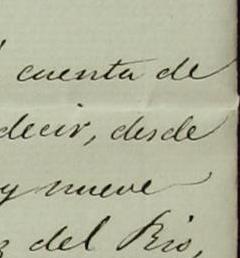 cuenta de
decir, desde
y nueve
del Rio,